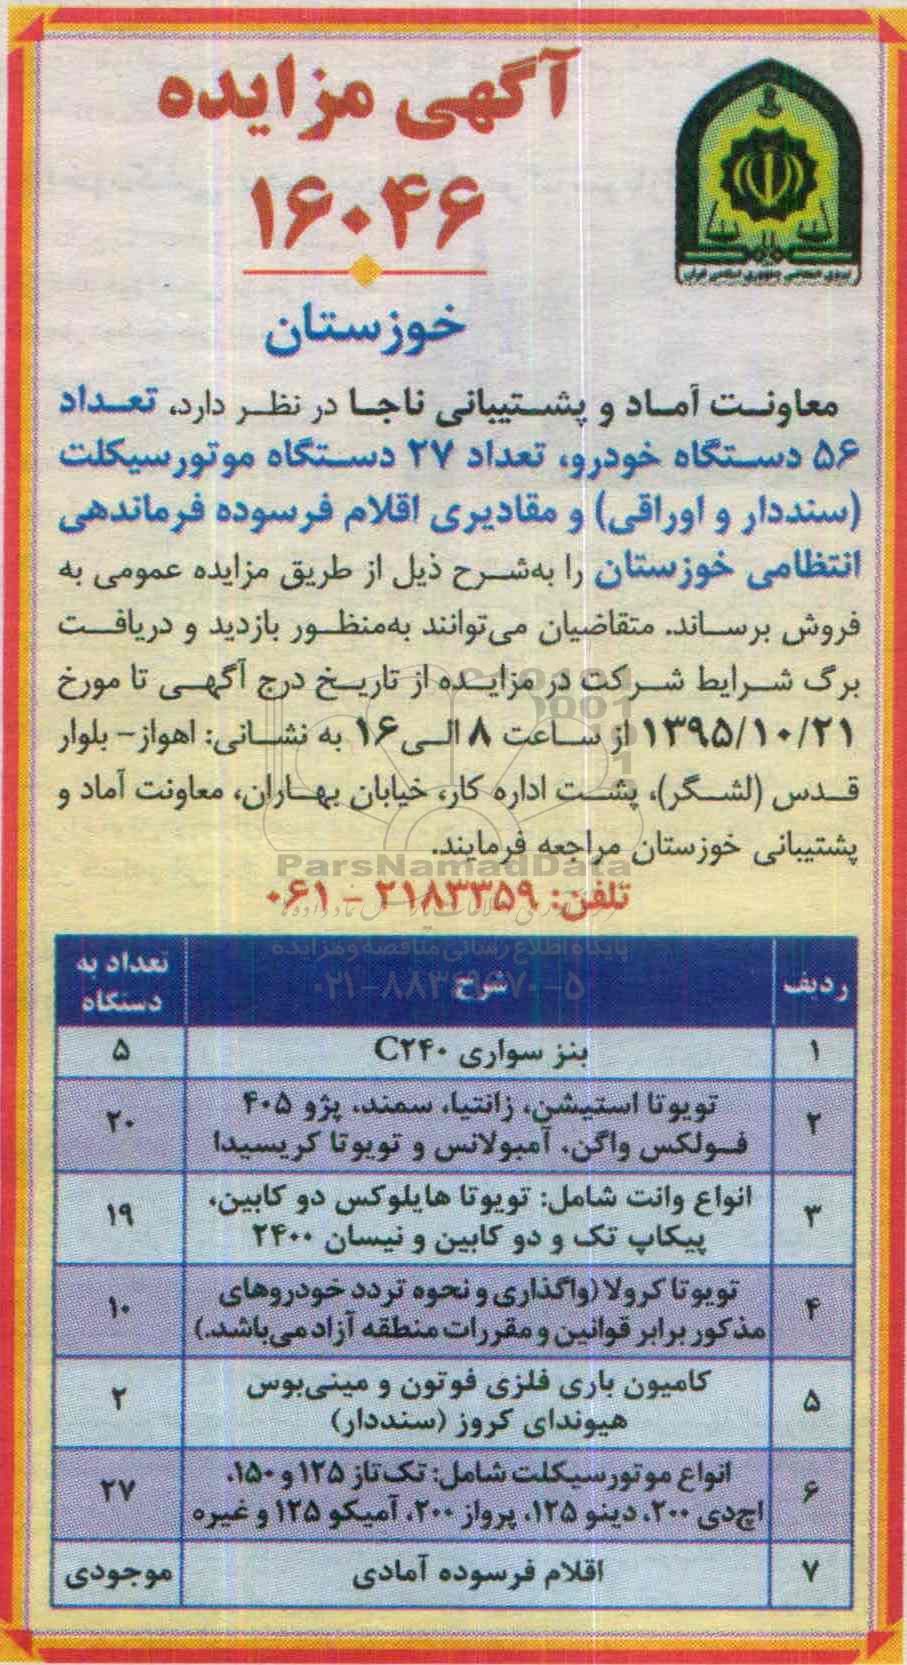 آگهی مزایده
۱۶۰۴۶
خوزستان
نیروی انتظامی جمهوری اسلامی ایران
معاونت آماد و پشتیبانی ناجا در نظر دارد، تعداد
۵۶ دستگاه خودرو، تعداد ۲۷ دستگاه موتورسیکلت
(سنددار و اوراقی) و مقادیری اقلام فرسوده فرماندهی
انتظامی خوزستان را به‌شرح ذیل از طریق مزایده عمومی به
فروش برساند. متقاضیان می‌توانند به‌منظور بازدید و دریافت
برگ شرایط شرکت در مزایده از تاریخ درج آگهی تا مورخ
۱۳۹۵/۱۰/۲۱ از ساعت ۸ الی ۱۶ به نشانی: اهواز- بلوار
قدس (لشگر)، پشت اداره کار، خیابان بهاران، معاونت آماد و
پشتیبانی خوزستان مراجعه فرمایند.
ParsNamadData
تلفن: ۲۱۸۳۳۵۹ - ۰۶۱
پایگاه اطلاع رسانی مناقصه و مزایده
۰۲۱-۸۸۳۴۹۶۷۰-۵
ردیف شرح تعداد به دستگاه
۱ بنز سواری C۲۴۰ ۵
۲ تویوتا استیشن، زانتیا، سمند، پژو ۴۰۵
فولکس واگن، آمبولانس و تویوتا کریسیدا ۲۰
۳ انواع وانت شامل: تویوتا هایلوکس دو کابین،
پیکاپ تک و دو کابین و نیسان ۲۴۰۰ ۱۹
۴ تویوتا کرولا (واگذاری و نحوه تردد خودروهای
مذکور برابر قوانین و مقررات منطقه آزاد می‌باشد.) ۱۰
۵ کامیون باری فلزی فوتون و مینی‌بوس
هیوندای کروز (سنددار) ۲
۶ انواع موتورسیکلت شامل: تک‌تاز ۱۲۵ و ۱۵۰،
اچ‌دی ۲۰۰، دینو ۱۲۵، پرواز ۲۰۰، آمیکو ۱۲۵ و غیره ۲۷
۷ اقلام فرسوده آمادی موجودی